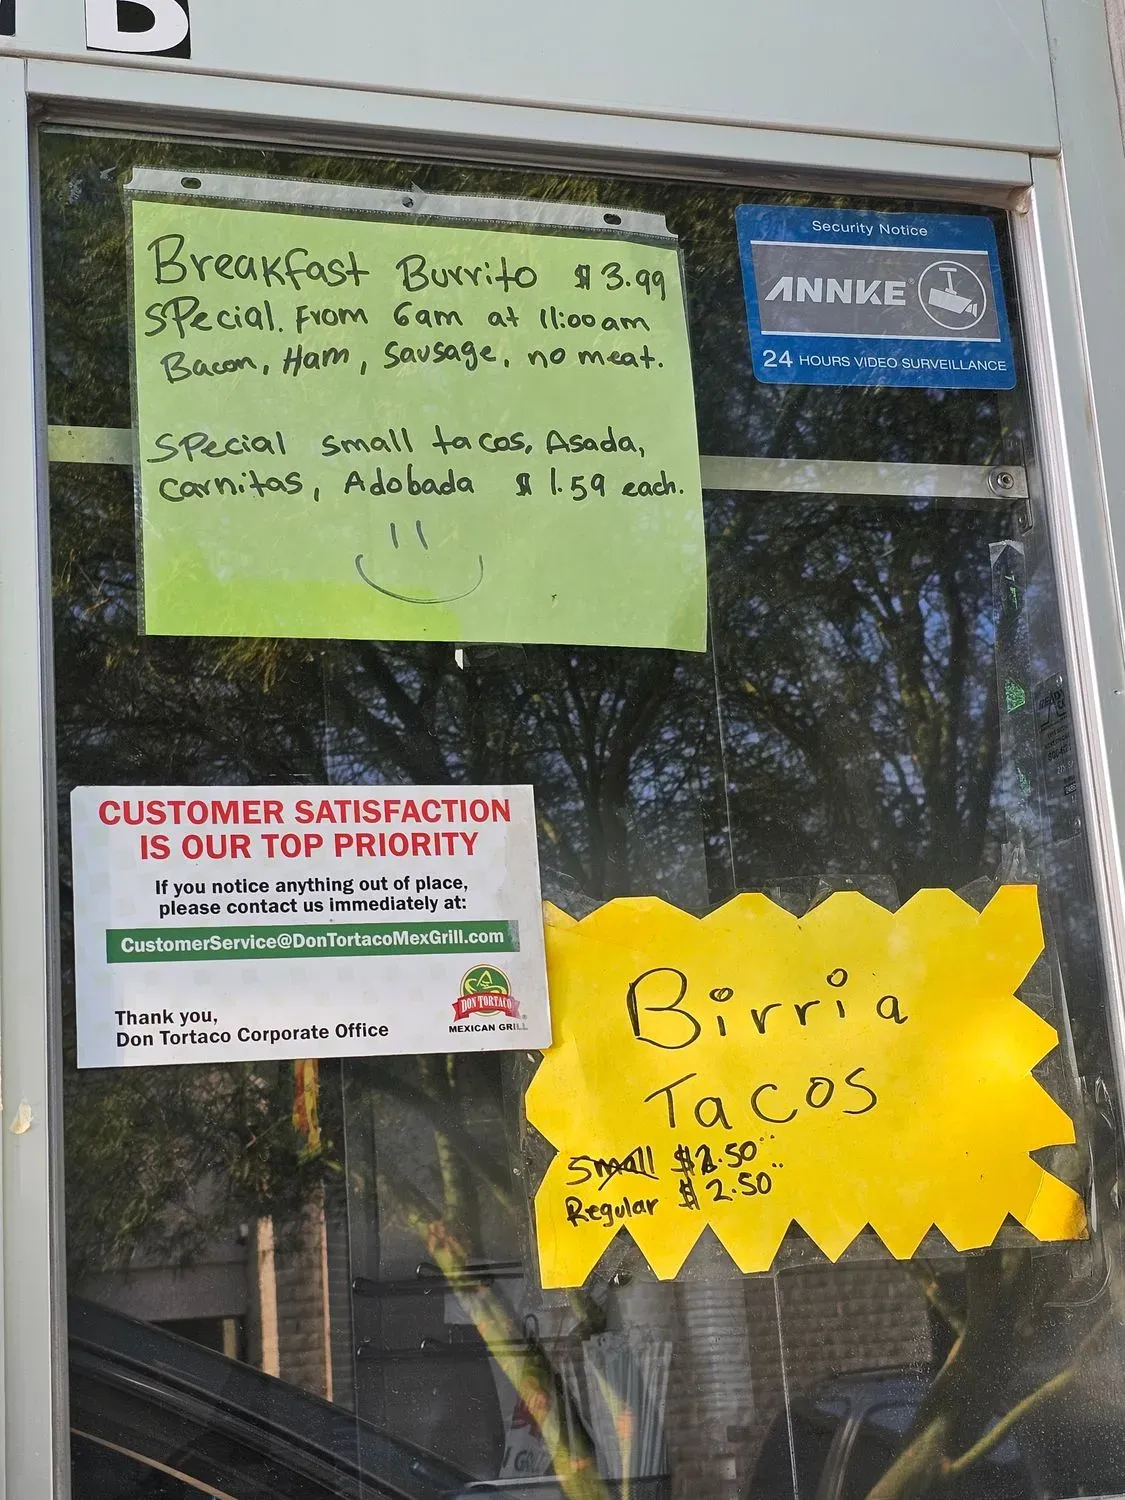 B
Breakfast Burrito $3.99
Special. From 6am at 11:00am
Bacon, Ham, Sausage, no meat.
Special small tacos, Asada,
Carnitas, Adobada $1.59 each.
Security Notice
ANNKE
24 HOURS VIDEO SURVEILLANCE
CUSTOMER SATISFACTION
IS OUR TOP PRIORITY
If you notice anything out of place,
please contact us immediately at:
CustomerService@DonTortacoMexGrill.com
Thank you,
Don Tortaco Corporate Office
DON TORTACO
MEXICAN GRILL
Birria
Tacos
Small $2.50
Regular $2.50